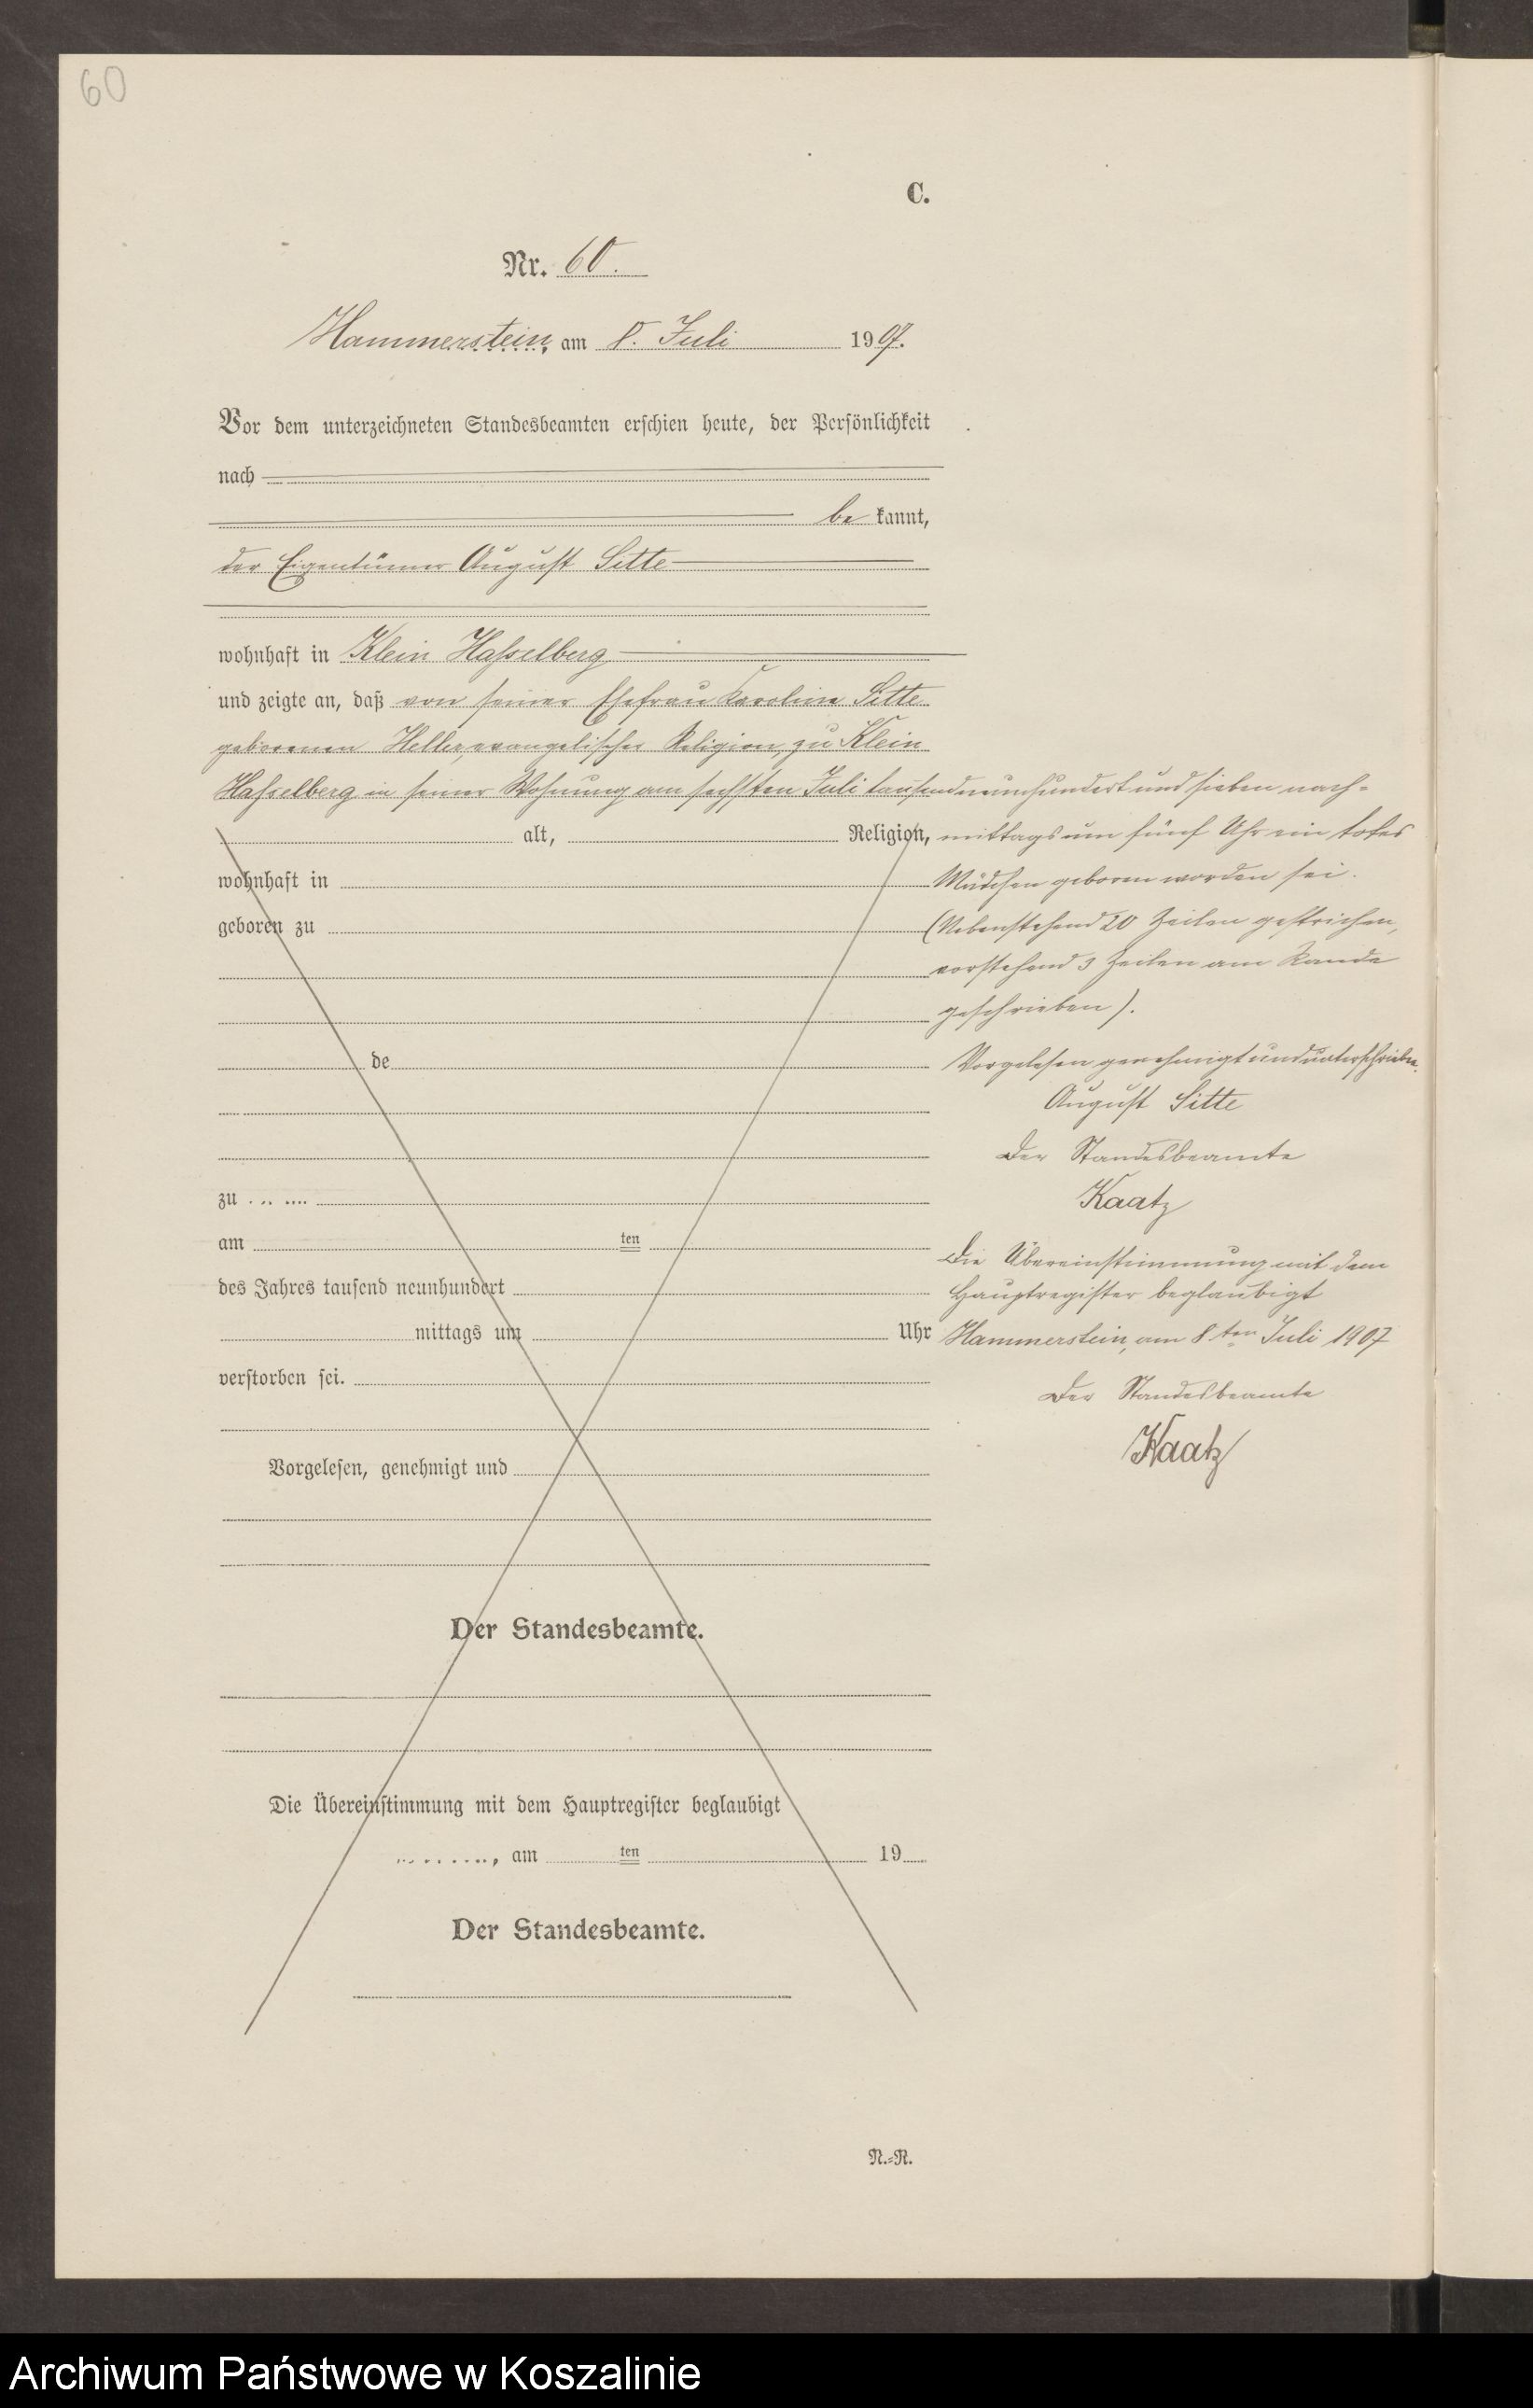 60
C.
Nr. 60.
Hammerstein, am 8. Juli 1907.
Vor dem unterzeichneten Standesbeamten erschien heute, der Persönlichkeit
nach
be kannt,
der Eigentümer August Sitte
wohnhaft in Klein Hasselberg
und zeigte an, daß von seiner Ehefrau Karoline Sitte
geborenen Heller, evangelischer Religion, zu Klein
Hasselberg in seiner Wohnung am sechsten Juli tausendneunhundert und sieben nach-
alt, Religion, mittags um fünf Uhr ein totes
wohnhaft in Mädchen geboren worden sei.
geboren zu (Nebenstehend 20 Zeilen gestrichen,
vorstehend 3 Zeilen am Rande
geschrieben).
de Vorgelesen genehmigt und unterschrieben.
August Sitte
Der Standesbeamte
zu Kaatz
am ten Die Übereinstimmung mit dem
des Jahres tausend neunhundert Hauptregister beglaubigt
mittags um Uhr Hammerstein, am 8ten Juli 1907
verstorben sei. Der Standesbeamte
Kaatz
Vorgelesen, genehmigt und
Der Standesbeamte.
Die Übereinstimmung mit dem Hauptregister beglaubigt
, am ten 19
Der Standesbeamte.
N.=R.
Archiwum Państwowe w Koszalinie